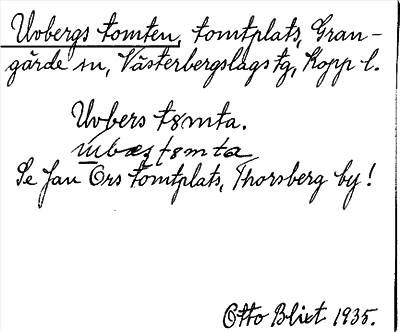 Uvbergs tomten, tomtplats, Gran-
gärde sn, Västerbergslags tg, Kopp l.
Uvbers tomta.
Se Jan Ers tomtplats, Thorsberg by!
Otto Blixt 1935.